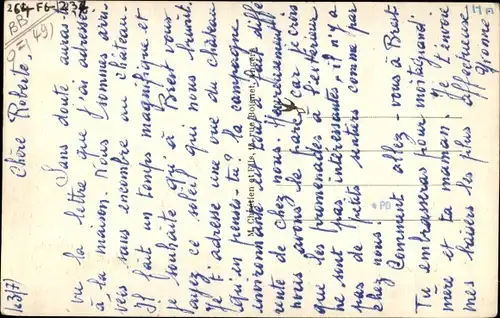 Chère Roberte,
Sans doute auras-
tu la lettre que t'ai adressée
à la maison. Nous sommes arri-
vés sans encombre au château
Il fait un temps magnifique et
je souhaite qu'à Brest vous
ayez ce soleil qui nous
Je t'adresse une vue du château
qu'en penses-tu? la campagne
environnante est tout à diffé
rente de chez nous. Heureusement
nous avons le parc, car tu sais
que les promenades à l'extérieur
ne sont pas intéressantes, il n'y a
pas de petits sentiers comme par
chez nous
Comment allez-vous à Brest
Tu embrasseras pour moi ta grand
mère et ta maman. Je t'envoie
mes baisers les plus affectueux
Yvonne
M. Chrétien et Fils, rue Boisnet, Angers
*PD